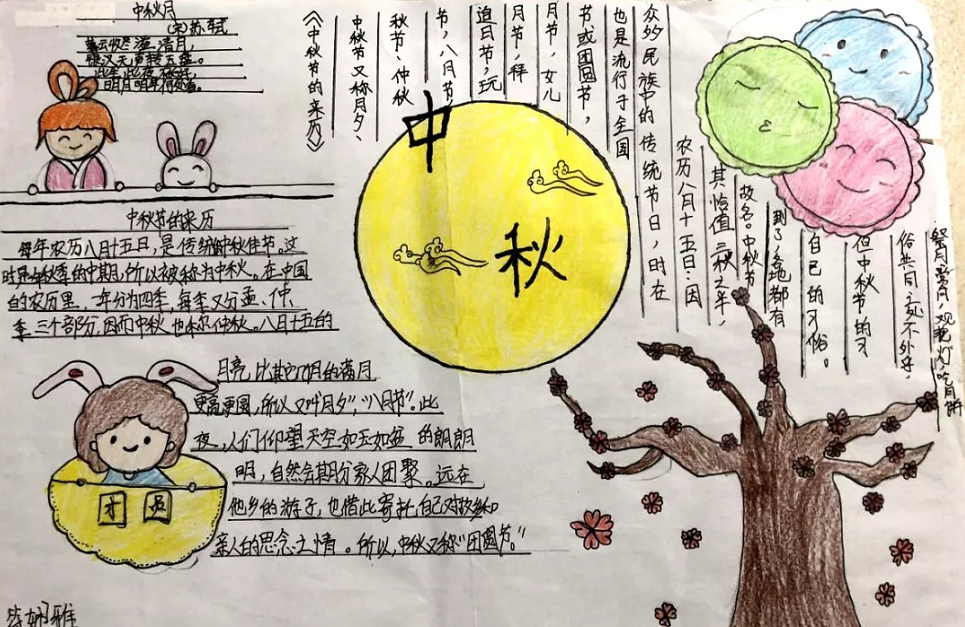 中秋月
(宋)苏轼
暮云收尽溢清月，
银汉无声转玉盘。
此生此夜不长好，
明月明年何处看。
中秋节的来历
每年农历八月十五日，是传统的中秋佳节。这
时是年秋季的中期，所以被称为中秋。在中国
的农历里，一年分为四季，每季又分孟、仲、
季三个部分，因而中秋也称仲秋。八月十五的
月亮比其它几个月的满月
更高更圆，所以又叫"月夕"，"八月节"。此
夜，人们仰望天空如玉如盆的朗朗
明，自然会期分家人团聚。远在
他乡的游子，也借此寄托自己对故乡和
亲人的思念之情。所以，中秋又称"团圆节。"
中
秋
《中秋节的来历》
中秋节又称月夕、
秋节、仲秋
节，八月节，
追月节，玩
月节，拜
月节，女儿
节或团圆节，
也是流行于全国
众多民族中的传统节日，时在
农历八月十五日：因
其恰值三秋之半，
故名。中秋节
到了各地都有
自己的习俗。
但中秋节的习
俗共同之处不外乎，
祭月赏月，观花灯，吃月饼
团
圆